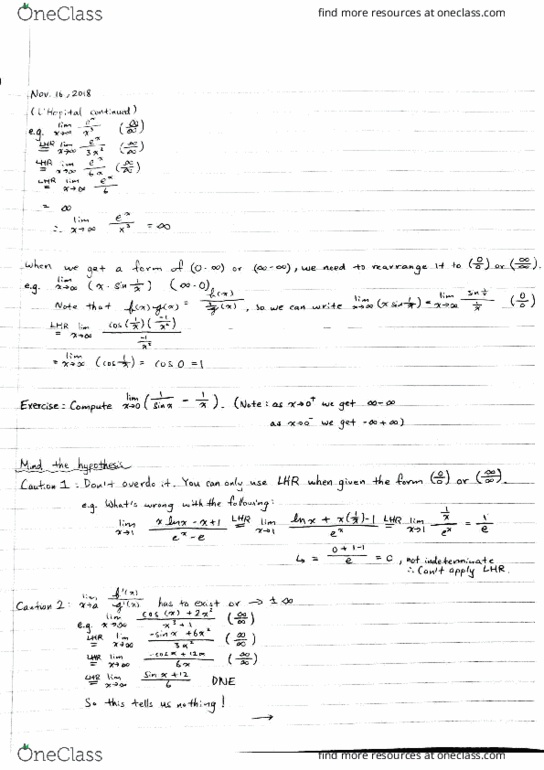 OneClass
find more resources at oneclass.com
Nov. 16, 2018
(L'Hopital continued)
e.g. lim x→∞ e^x/x^3 (∞/∞)
LHR = lim x→∞ e^x/3x^2 (∞/∞)
LHR = lim x→∞ e^x/6x (∞/∞)
LHR = lim x→∞ e^x/6
= ∞
∴ lim x→∞ e^x/x^3 = ∞
When we get a form of (0·∞) or (∞-∞), we need to rearrange it to (0/0) or (∞/∞).
e.g. lim x→∞ (x·sin 1/x) (∞·0)
Note that f(x)·g(x) = f(x)/(1/g(x)), so we can write lim x→∞ (x sin 1/x) = lim x→∞ (sin 1/x)/(1/x) (0/0)
LHR = lim x→∞ cos(1/x)(-1/x^2)/(-1/x^2)
= lim x→∞ (cos 1/x) = cos 0 = 1
Exercise: Compute lim x→0 (1/sin x - 1/x). (Note: as x→0⁺ we get ∞-∞
as x→0⁻ we get -∞+∞)
Mind the hypothesis
Caution 1: Don't overdo it. You can only use LHR when given the form (0/0) or (∞/∞).
e.g. What's wrong with the following:
lim x→1 (x ln x - x + 1)/(e^x - e) LHR = lim x→1 (ln x + x(1/x) - 1)/e^x LHR = lim x→1 (1/x)/e^x = 1/e
↳ = (0+1-1)/e = 0, not indeterminate
∴ Can't apply LHR.
Caution 2: lim x→a f'(x)/g'(x) has to exist or → ±∞
e.g. lim x→∞ (cos(x) + 2x^2)/(x^3+1) (∞/∞)
LHR = lim x→∞ (-sin x + 6x^2)/3x^2 (∞/∞)
LHR = lim x→∞ (-cos x + 12x)/6x (∞/∞)
LHR = lim x→∞ (sin x + 12)/6 DNE
So this tells us nothing!
→
OneClass
find more resources at oneclass.com